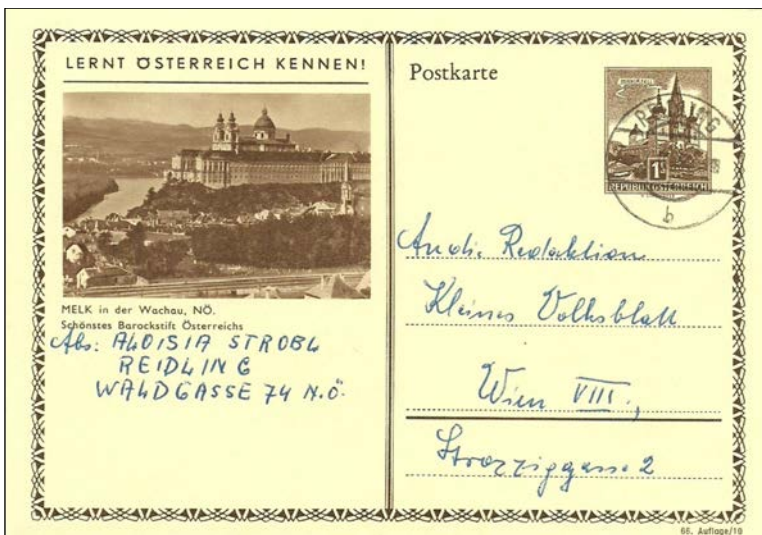 LERNT ÖSTERREICH KENNEN!
MELK in der Wachau, NÖ.
Schönstes Barockstift Österreichs
Abs: ALOISIA STROBL
REIDLING
WALDGASSE 74 N.Ö.
Postkarte
1S
REPUBLIK ÖSTERREICH
b
An die Redaktion
Kleines Volksblatt
Wien VIII.,
Strozziggasse 2
66. Auflage/10